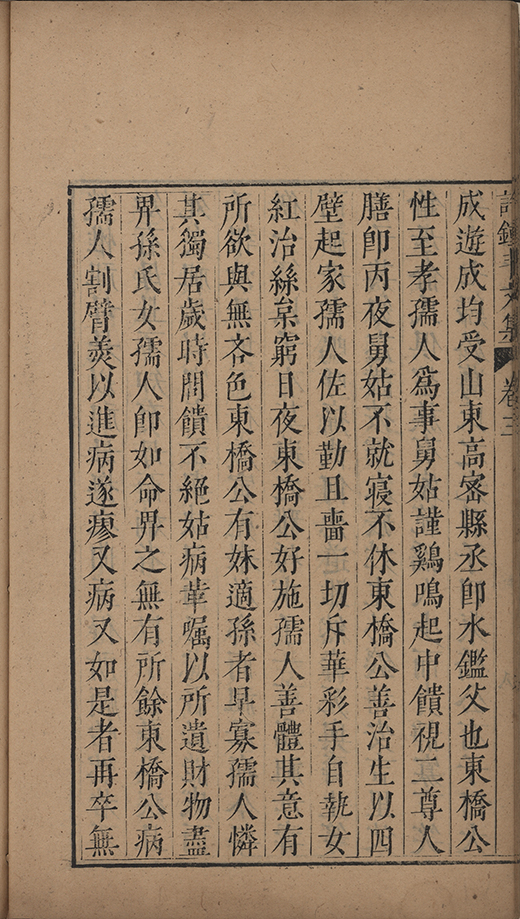 文集 卷三
成遊成均受山東高密縣丞即水鑑父也東橋公
性至孝孺人爲事舅姑謹鷄鳴起中饋視二尊人
膳即丙夜舅姑不就寢不休東橋公善治生以四
壁起家孺人佐以勤且嗇一切斥華彩手自執女
紅治絲枲窮日夜東橋公好施孺人善體其意有
所欲與無吝色東橋公有妹適孫者早寡孺人憐
其獨居歲時問饋不絕姑病革囑以所遺財物盡
畀孫氏女孺人即如命畀之無有所餘東橋公病
孺人割臂羹以進病遂瘳又病又如是者再卒無